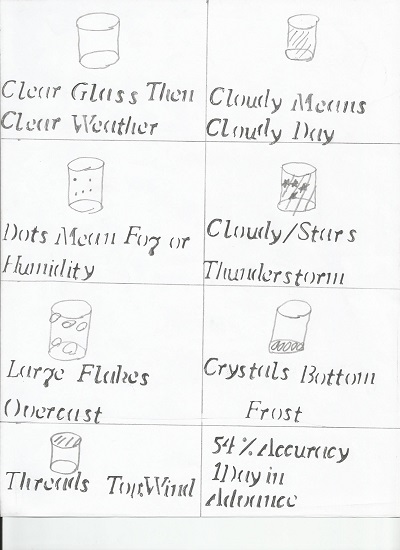 Clear Glass Then
Clear Weather
Cloudy Means
Cloudy Day
Dots Mean Fog or
Humidity
Cloudy/Stars
Thunderstorm
Large Flakes
Overcast
Crystals Bottom
Frost
Threads Top,Wind
54% Accuracy
1Day in
Advance